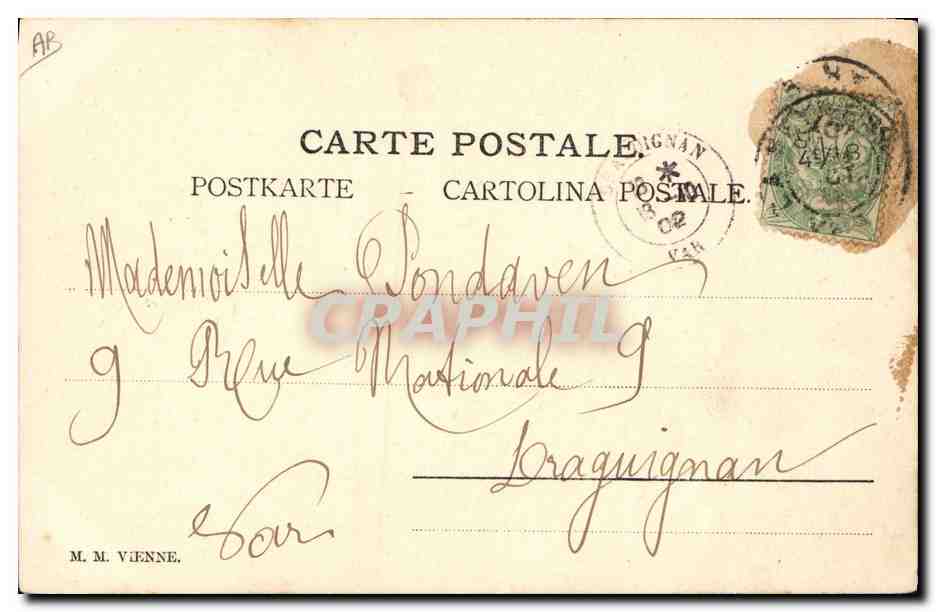 AB
CARTE POSTALE.
POSTKARTE – CARTOLINA POSTALE.
DRAGUIGNAN
02
VAR
Mademoiselle Pondaven
CPARPHIL
9 Rue Nationale 9
Draguignan
Var
M. M. VIENNE.